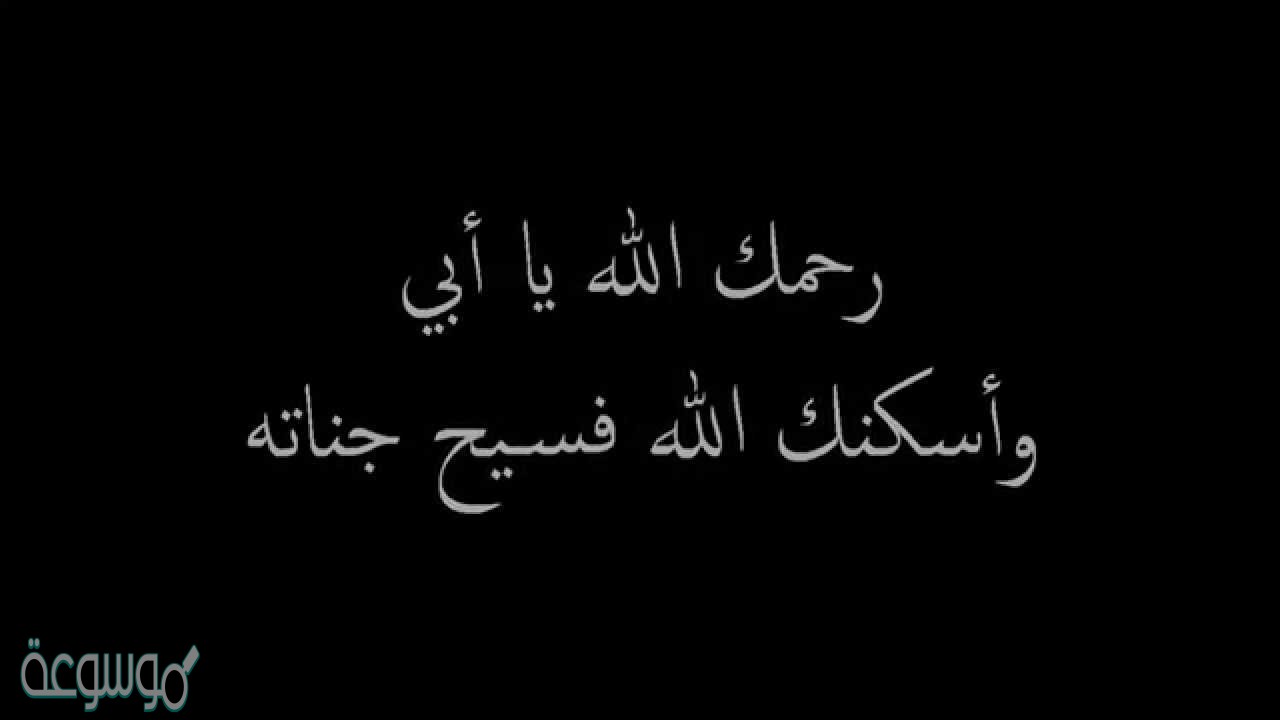 رحمك الله يا أبي
وأسكنك الله فسيح جناته
موسوعة